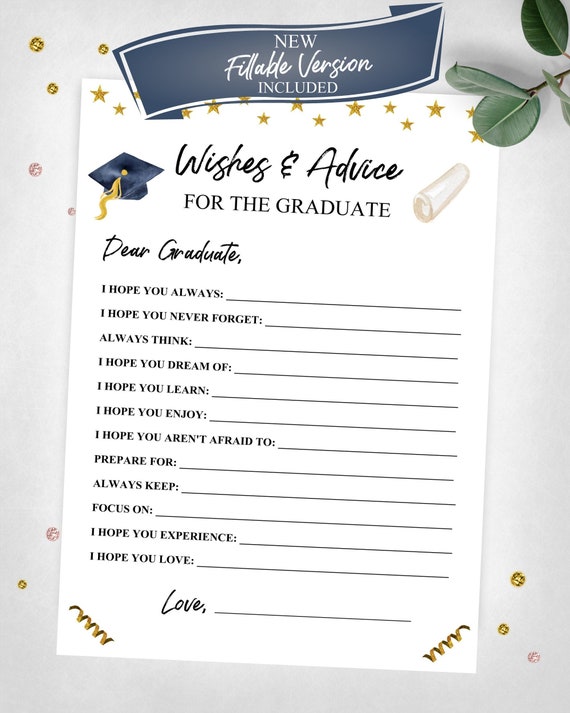 NEW
Fillable Version
INCLUDED
Wishes & Advice
FOR THE GRADUATE
Dear Graduate,
I HOPE YOU ALWAYS:
I HOPE YOU NEVER FORGET:
ALWAYS THINK:
I HOPE YOU DREAM OF:
I HOPE YOU LEARN:
I HOPE YOU ENJOY:
I HOPE YOU AREN'T AFRAID TO:
PREPARE FOR:
ALWAYS KEEP:
FOCUS ON:
I HOPE YOU EXPERIENCE:
I HOPE YOU LOVE:
Love,